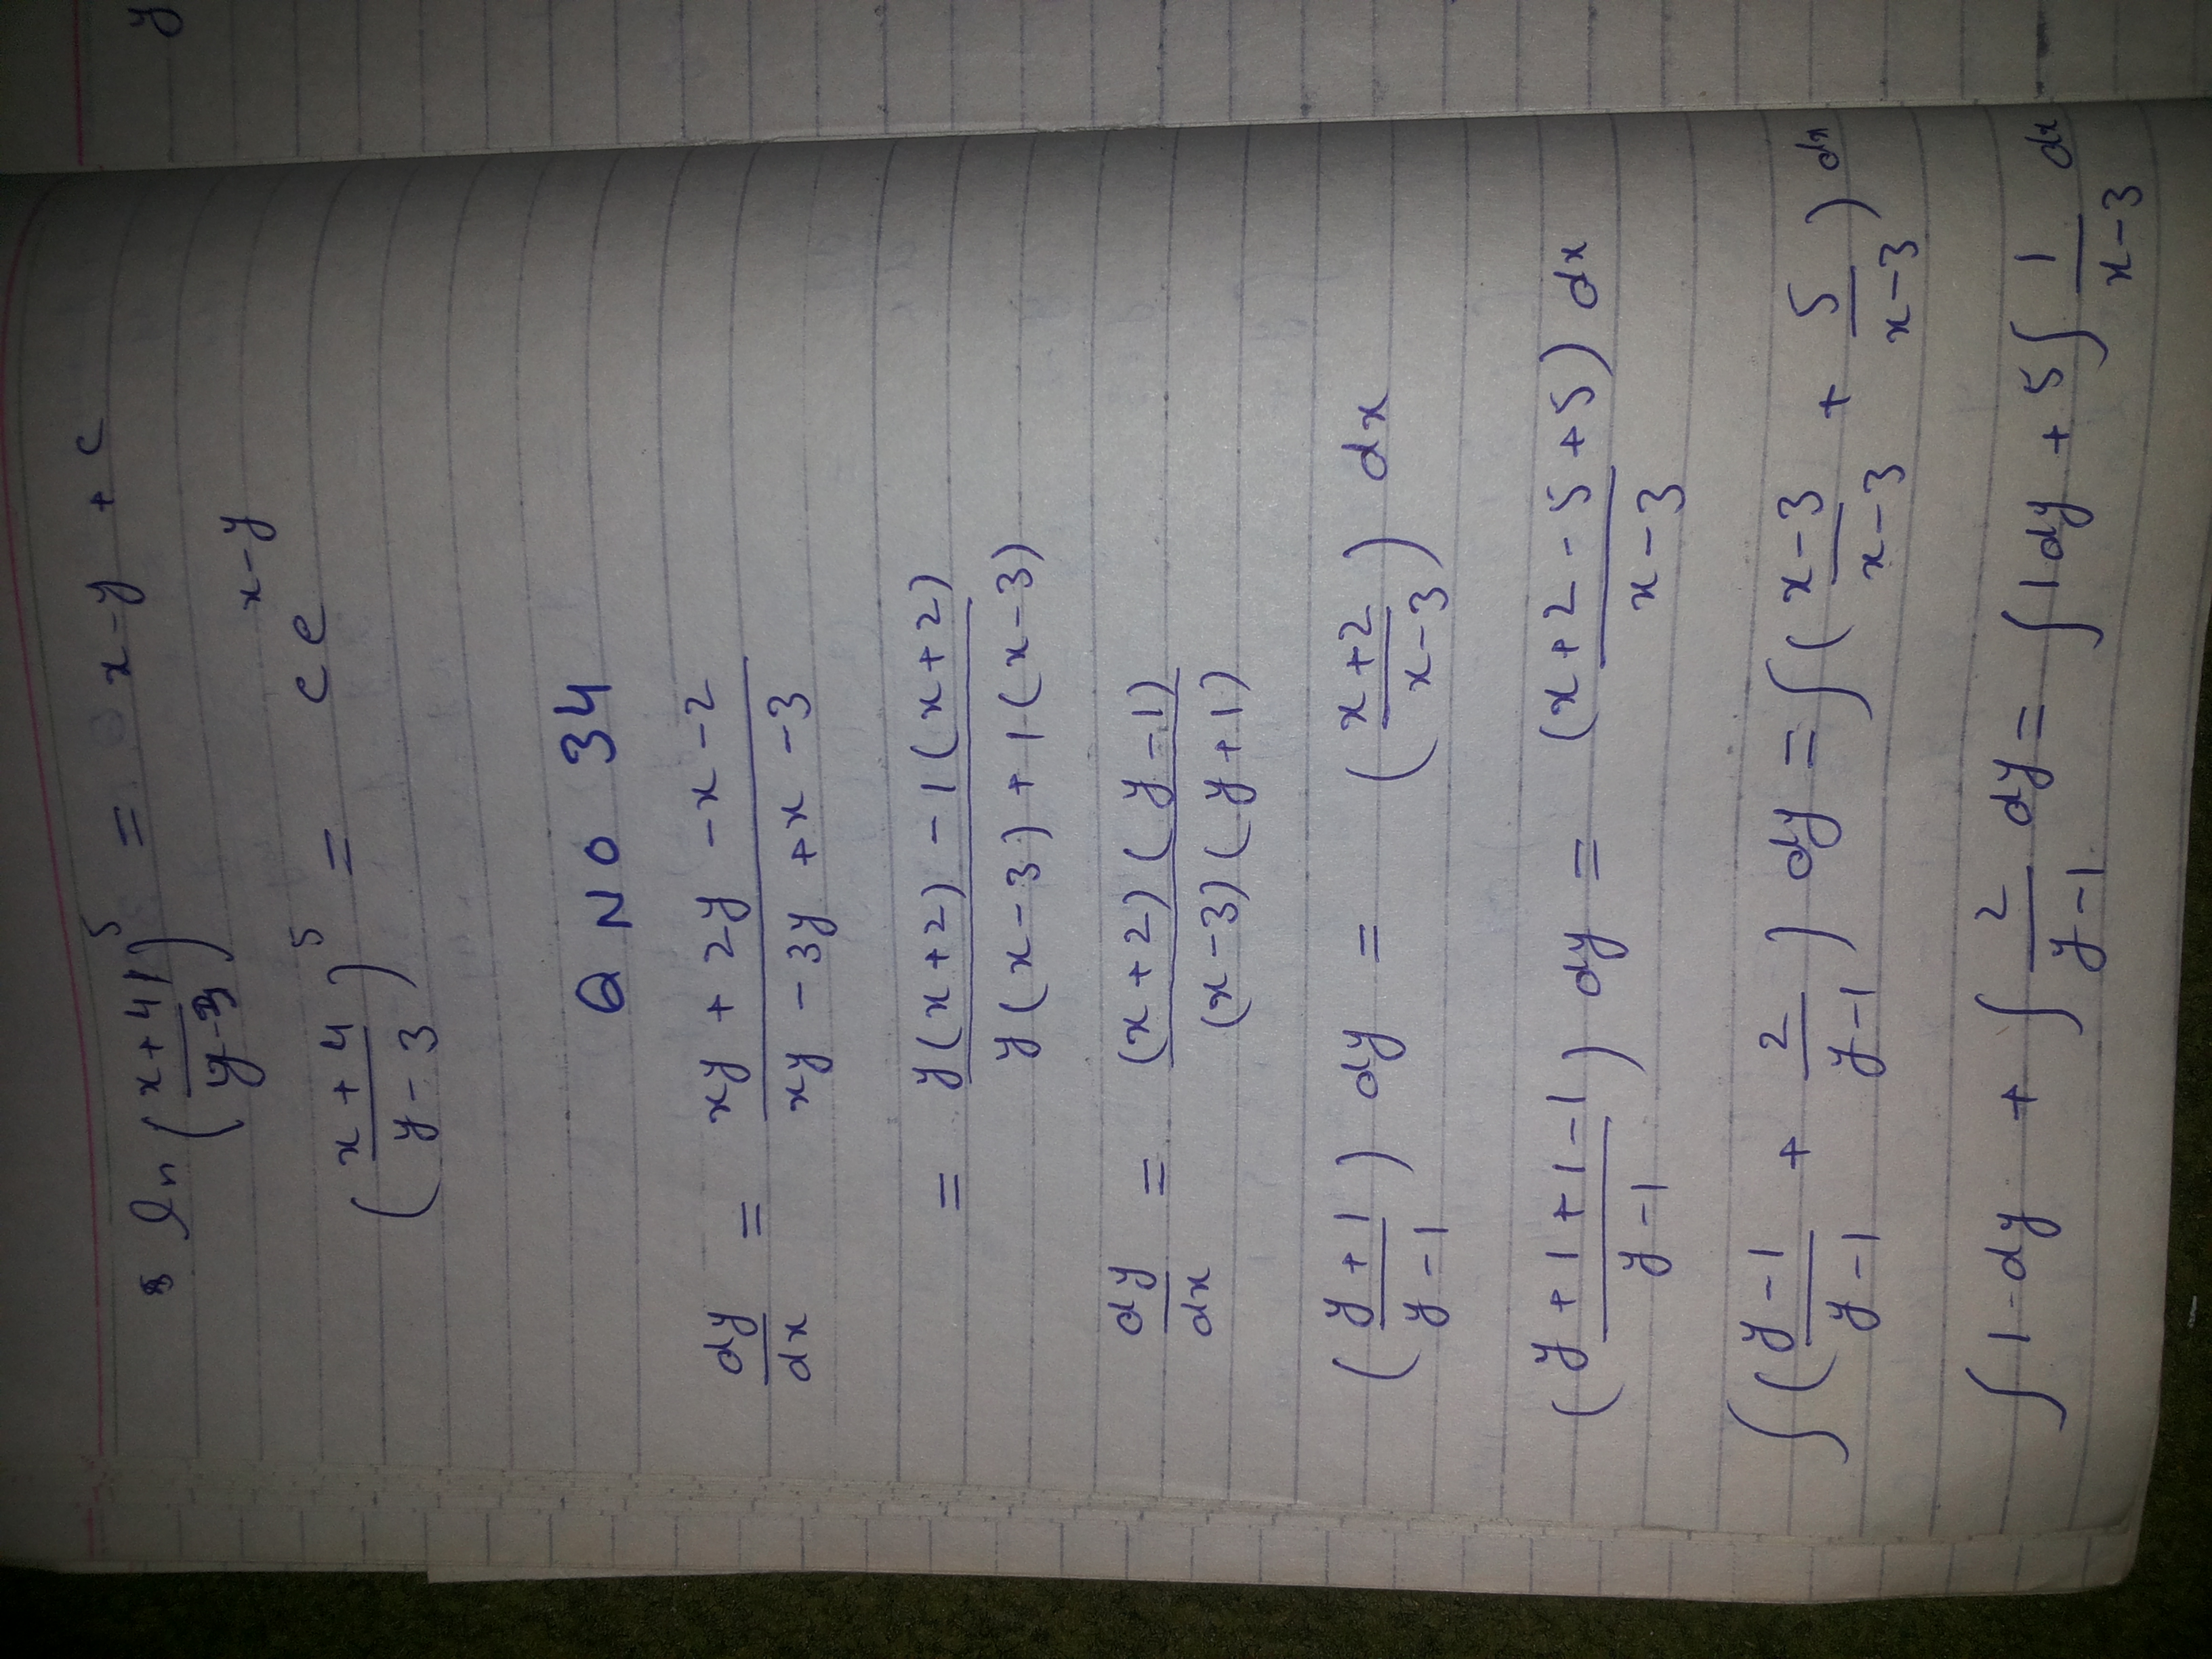 ln((x+4)/(y-3))^5 = x-y + c
((x+4)/(y-3))^5 = c e^(x-y)
Q NO 34
dy/dx = (xy + 2y - x - 2)/(xy - 3y + x - 3)
= (y(x+2) - 1(x+2))/(y(x-3) + 1(x-3))
dy/dx = ((x+2)(y-1))/((x-3)(y+1))
((y+1)/(y-1)) dy = ((x+2)/(x-3)) dx
((y+1+1-1)/(y-1)) dy = ((x+2-5+5)/(x-3)) dx
∫((y-1)/(y-1) + 2/(y-1)) dy = ∫((x-3)/(x-3) + 5/(x-3)) dx
∫1·dy + ∫ 2/(y-1) dy = ∫1dy + 5∫ 1/(x-3) dx
y